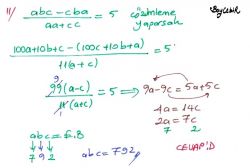 11/ abc - cba / aa + cc = 5 çözümleme yaparsak
100a+10b+c - (100c+10b+a) / 11(a+c) = 5
9
99(a-c) / 11(a+c) = 5 ⇒ 9a-9c = 5a+5c
4a = 14c
2a = 7c
7 2
abc = ?
7 9 2
abc = 792
CEVAP: D